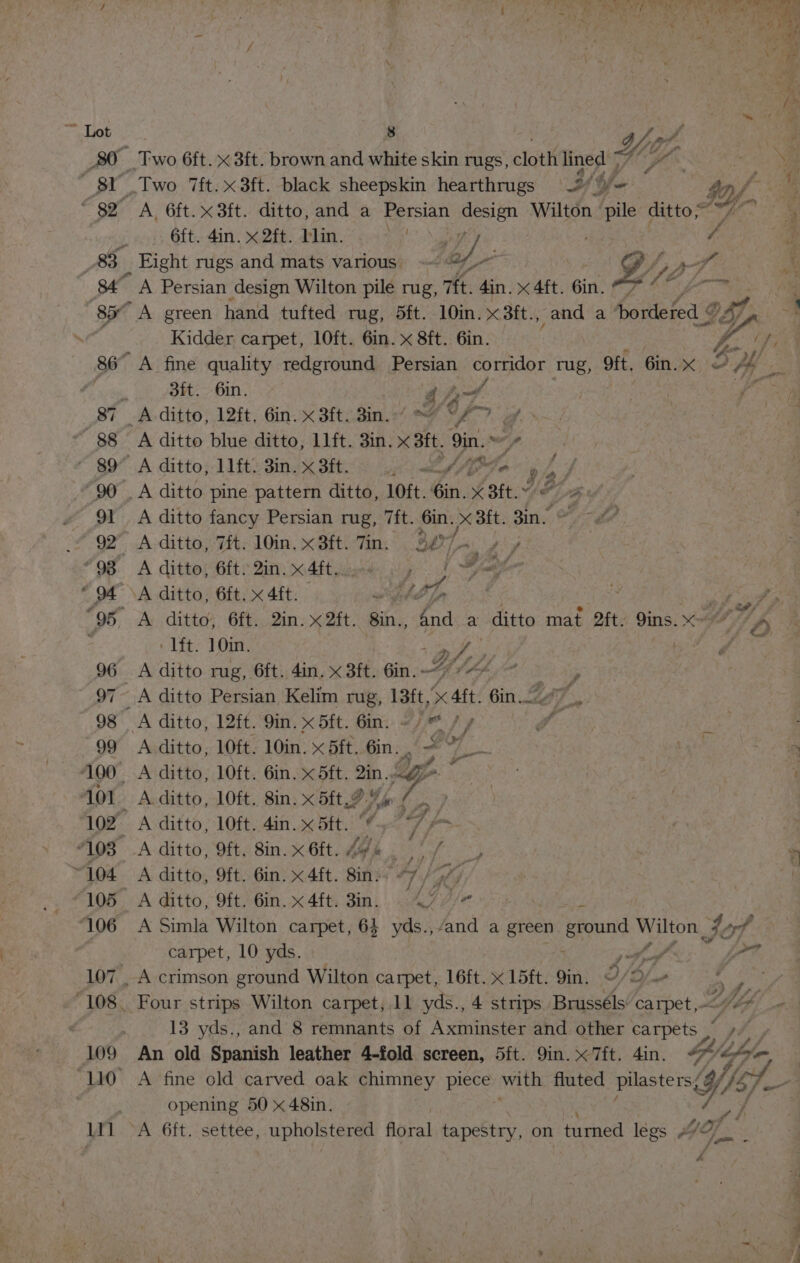 Lot 8
80 Two 6ft. × 3ft. brown and white skin rugs, cloth lined
81 Two 7ft. × 3ft. black sheepskin hearthrugs
82 A, 6ft. × 3ft. ditto, and a Persian design Wilton pile ditto,
6ft. 4in. × 2ft. 11in.
83 Eight rugs and mats various
84 A Persian design Wilton pile rug, 7ft. 4in. × 4ft. 6in.
85 A green hand tufted rug, 5ft. 10in. × 3ft., and a bordered
Kidder carpet, 10ft. 6in. × 8ft. 6in.
86 A fine quality redground Persian corridor rug, 9ft. 6in. ×
3ft. 6in.
87 A ditto, 12ft. 6in. × 3ft. 3in.
88 A ditto blue ditto, 11ft. 3in. × 3ft. 9in.
89 A ditto, 11ft. 3in. × 3ft.
90 A ditto pine pattern ditto, 10ft. 6in. × 3ft.
91 A ditto fancy Persian rug, 7ft. 6in. × 3ft. 3in.
92 A ditto, 7ft. 10in. × 3ft. 7in.
93 A ditto, 6ft. 2in. × 4ft.
94 A ditto, 6ft. × 4ft.
95 A ditto, 6ft. 2in. × 2ft. 8in., and a ditto mat 2ft. 9ins. ×
1ft. 10in.
96 A ditto rug, 6ft. 4in. × 3ft. 6in.
97 A ditto Persian Kelim rug, 13ft. × 4ft. 6in.
98 A ditto, 12ft. 9in. × 5ft. 6in.
99 A ditto, 10ft. 10in. × 5ft. 6in.
100 A ditto, 10ft. 6in. × 5ft. 2in.
101 A ditto, 10ft. 8in. × 5ft.
102 A ditto, 10ft. 4in. × 5ft.
103 A ditto, 9ft. 8in. × 6ft.
104 A ditto, 9ft. 6in. × 4ft. 8in.
105 A ditto, 9ft. 6in. × 4ft. 3in.
106 A Simla Wilton carpet, 6½ yds., and a green ground Wilton
carpet, 10 yds.
107 A crimson ground Wilton carpet, 16ft. × 15ft. 9in.
108 Four strips Wilton carpet, 11 yds., 4 strips Brussels carpet,
13 yds., and 8 remnants of Axminster and other carpets
109 An old Spanish leather 4-fold screen, 5ft. 9in. × 7ft. 4in.
110 A fine old carved oak chimney piece with fluted pilasters,
opening 50 × 48in.
111 A 6ft. settee, upholstered floral tapestry, on turned legs